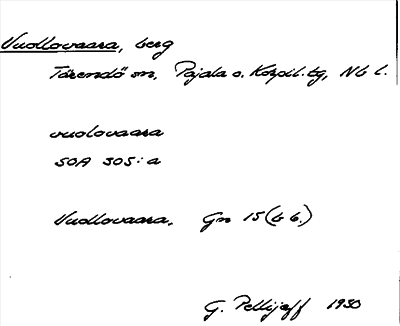 Vuollovaara, berg
Tärendö sn, Pajala o. Korpil. tg, Nb l.
vuolovaara
SOA 305:a
Vuollovaara. Gn 15 (b 6.)
G. Pellijeff 1980